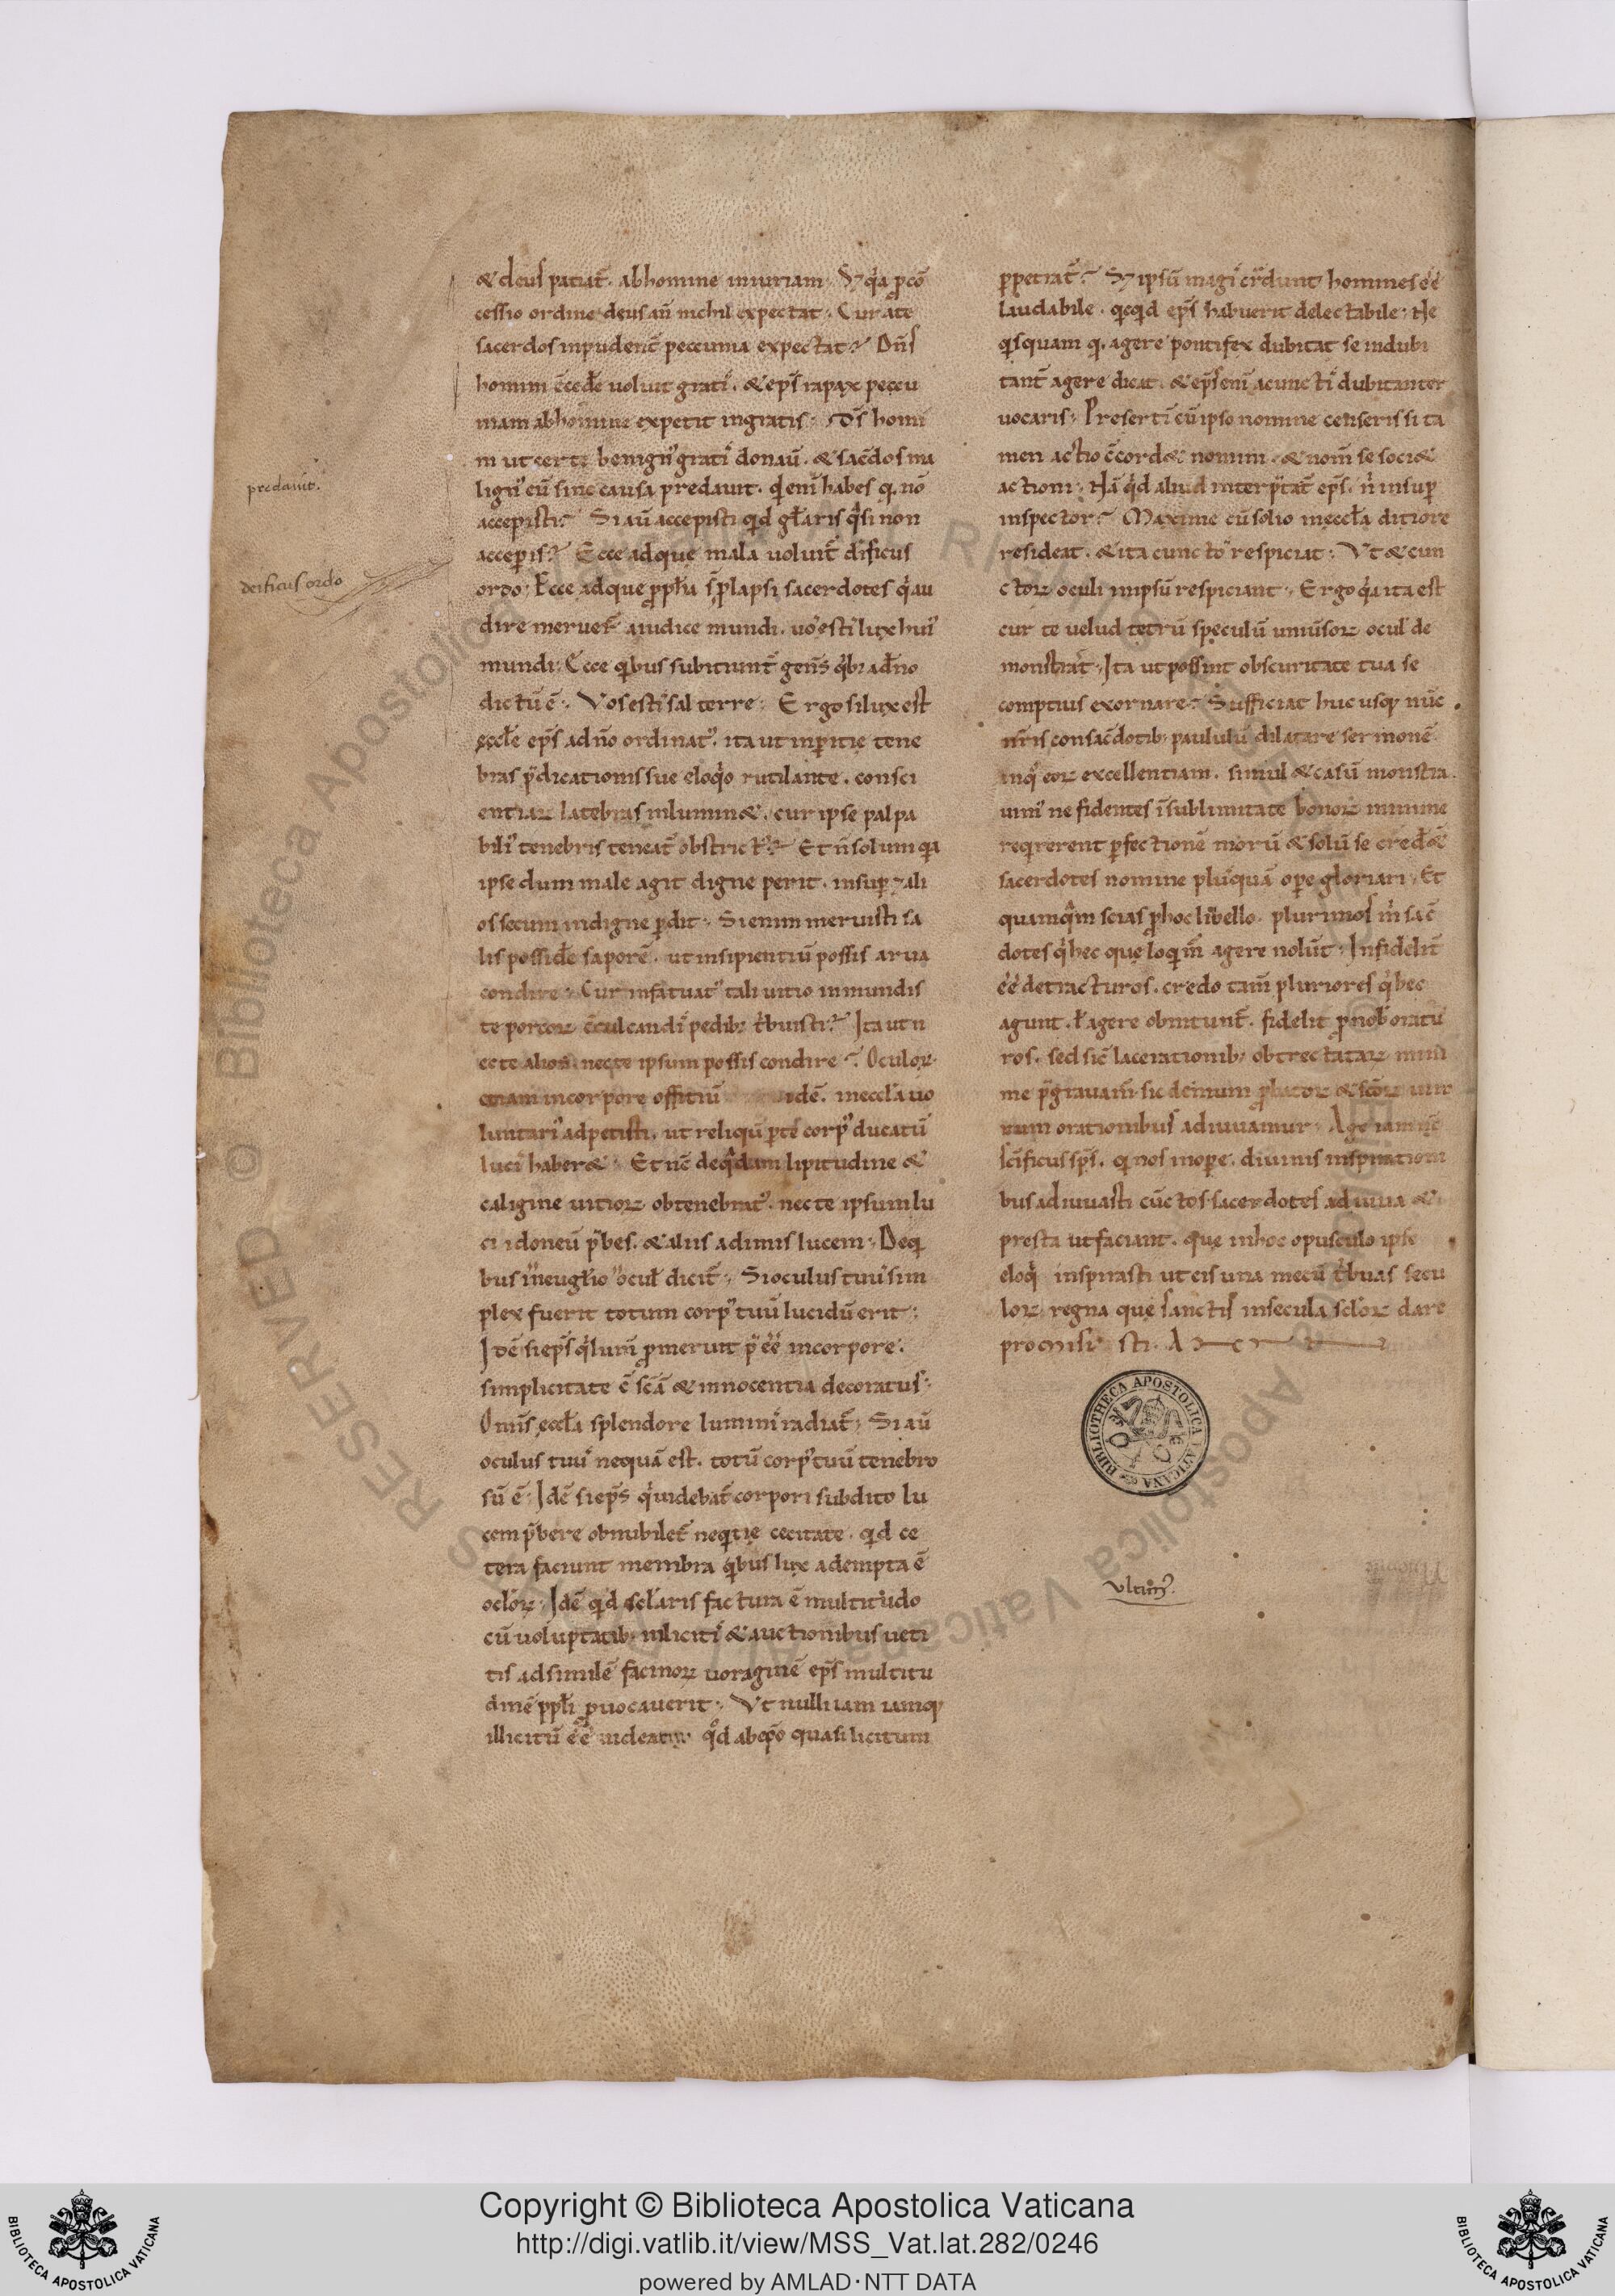 predauit.
deificus ordo
& deus patiat̄. abhomine iniuriam. S; q̇a p̱cō
cessio ordine deus aū nichil expectat. Cur ate
sacerdos inpudent̄ peccunia expectat? Dn̄s
homini c̄ceđe uoluit grati᷒. & ep̄s rapax peccu
niam abhomine expetit ingratis. D̄s homi
ni ut certe benign᷒ grati᷒ donau̅. & sac̄dos ma
lign᷒ cū sine causa predauit. qd enī habes q. nō
accepisti? Si aū accepisti qid gl̄aris q̇si non
acceꝑis? Ecce adque mala uoluit̄ dīficus
ordo. Ecce adque ꝓpħa sp̱lapsi sacerdotes q̇ au
dire meruer̄ aiudice mundi. uos esti᷒ lux hui᷒
mundi. Ecce qibus subiciunt̄ gen̄s q̇b; adn̄o
dictū ē. Vos esti᷒ sal terre. Ergo si lux est
ęccłe ep̄s adn̄o ordinat᷒. ita ut inꝑitię tene
bras p̄dicationis sue eloq̇o rutilante. consci
entiaꝝ latebras inlumin&. cur ipse palpa
bili᷒ tenebris teneat̄ obstrict᷒? Et n̄ solum qia
ipse dum male agit digne perit. insuꝑ 7 ali
os secum indigne ꝑdit. Si enim meruisti sa
lis possiđe saporē. ut insipientiū possis arua
condire. Cur infatuat᷒ tali uitio inmundis
te porcoꝝ c̄culcandi᷒ pedib; t̄buisti? Ita ut n
ec te alios necte ipsum possis condire? Oculoꝝ
etiam incorpore offitiū idē. ineccła uo
luntari᷒ adpetisti. ut reliqū ꝑtē corp᷒ ducatū
luci᷒ haber&. Et nc̄ deq̇dam lipitudine &
caligine uitioꝝ obtenebrat᷒. nec te ipsum lu
ci idoneū p̄bes. & aliis adimis lucem. Deq
bus ineugłio ocuł dicit̄. Si oculus tuus sim
plex fuerit totum corp᷒ tuū lucidū erit.
Idē si ep̄s q̇ lum̄ ꝓmeruit p̄ ēē incorpore.
simplicitate ē sc̄a & innocentia decoratus.
Omīs eccła splendore lumini᷒ radiat̄. Si aū
oculus tuus nequā est. totū corp᷒ tuū tenebro
sū ē. Idē si ep̄s q̇ uidebat̄ corpori subdito lu
cem p̄bere obnubilet̄ neqitię cecitate. qid ce
tera faciunt membra q̇bus lux adempta ē
ocloꝝ. Idē qid sclaris factura ē multitudo
cū uoluptatib; inliciti᷒ & auctionibus ueti
tis adsimilē facinoꝝ uoraginē ep̄s multitu
dinē ppłi ꝓuocauerit. Vt nulli iam iamq;
illicitū ēē uideatur qd̊ abep̄o quasi licitum
ꝑpetrat̄? S; ipsū magi᷒ cr̄dunt homines ēē
laudabile. qicqid ep̄s habuerit delectabile. Ne
qisquam q. agere pontifex dubitat se indubi
tant̄ agere dicat. & ep̄s enī acuncti᷒ dubitanter
uocaris. Presertī cū ipso nomine censeris si ta
men actio c̄cord& nomini. & nom̄ se soci&
actioni. Nā q̇d aliud interp̄tat̄ ep̄s. n̄ insuꝑ
inspector? Maxime cū solio ineccła ditiore
resideat. & ita cunctos respiciat. Vt & cun
ctoꝝ oculi inipsū respiciant. Ergo q̇a ita est
cur te uelud tetrū speculū uniusoꝝ ocul᷒ de
monstrat̄. Ita ut possint obscuritate tua se
comptius exornare? Sufficiat huc usq; nūc
nr̄is consac̄dotib; paululū dilatare sermonē
inq᷒ eoꝝ excellentiam. simul & casū monstra
uim᷒ ne fidentes ī sublimitate honoꝝ minime
reqirerent ꝑfectionē morū & solū se cređ&
sacerdotes nomine plusquā oꝑe gloriari. Et
quamq̇m scias ꝑ hoc libello. plurimos m̄ sac̄
dotes q̇ hec quę loqim̄ agere nolūt. Infidelit̄
ēē detracturos. credo tam̄ pluriores q̇ hec
agunt. ł agere obnitunt̄. fidelit̄ ꝓnob᷒ oratu
ros. sed sic̄ lacerationib; obtrectataꝝ mini
me p̄grauam̄ sic demum ꝓbatoꝝ & sc̄oꝝ uiro
rum orationibus adiuuamur. Age iam nc̄
sc̄ificus sp̄s. q nos inoꝑe. diuinis inspirationi
bus adiuuasti cūctos sacerdotes adiuua &
presta ut faciant. quę inhoc opusculo ipse
eloq̇ inspirasti ut eis una mecū t̄buas secu
loꝝ regna quę sanctis insecula scloꝝ dare
promisisti. AMEN
BIBLIOTHECA APOSTOLICA VATICANA
vltim᷒.
Copyright © Biblioteca Apostolica Vaticana
http://digi.vatlib.it/view/MSS_Vat.lat.282/0246
powered by AMLAD·NTT DATA
BIBLIOTECA APOSTOLICA VATICANA
BIBLIOTECA APOSTOLICA VATICANA